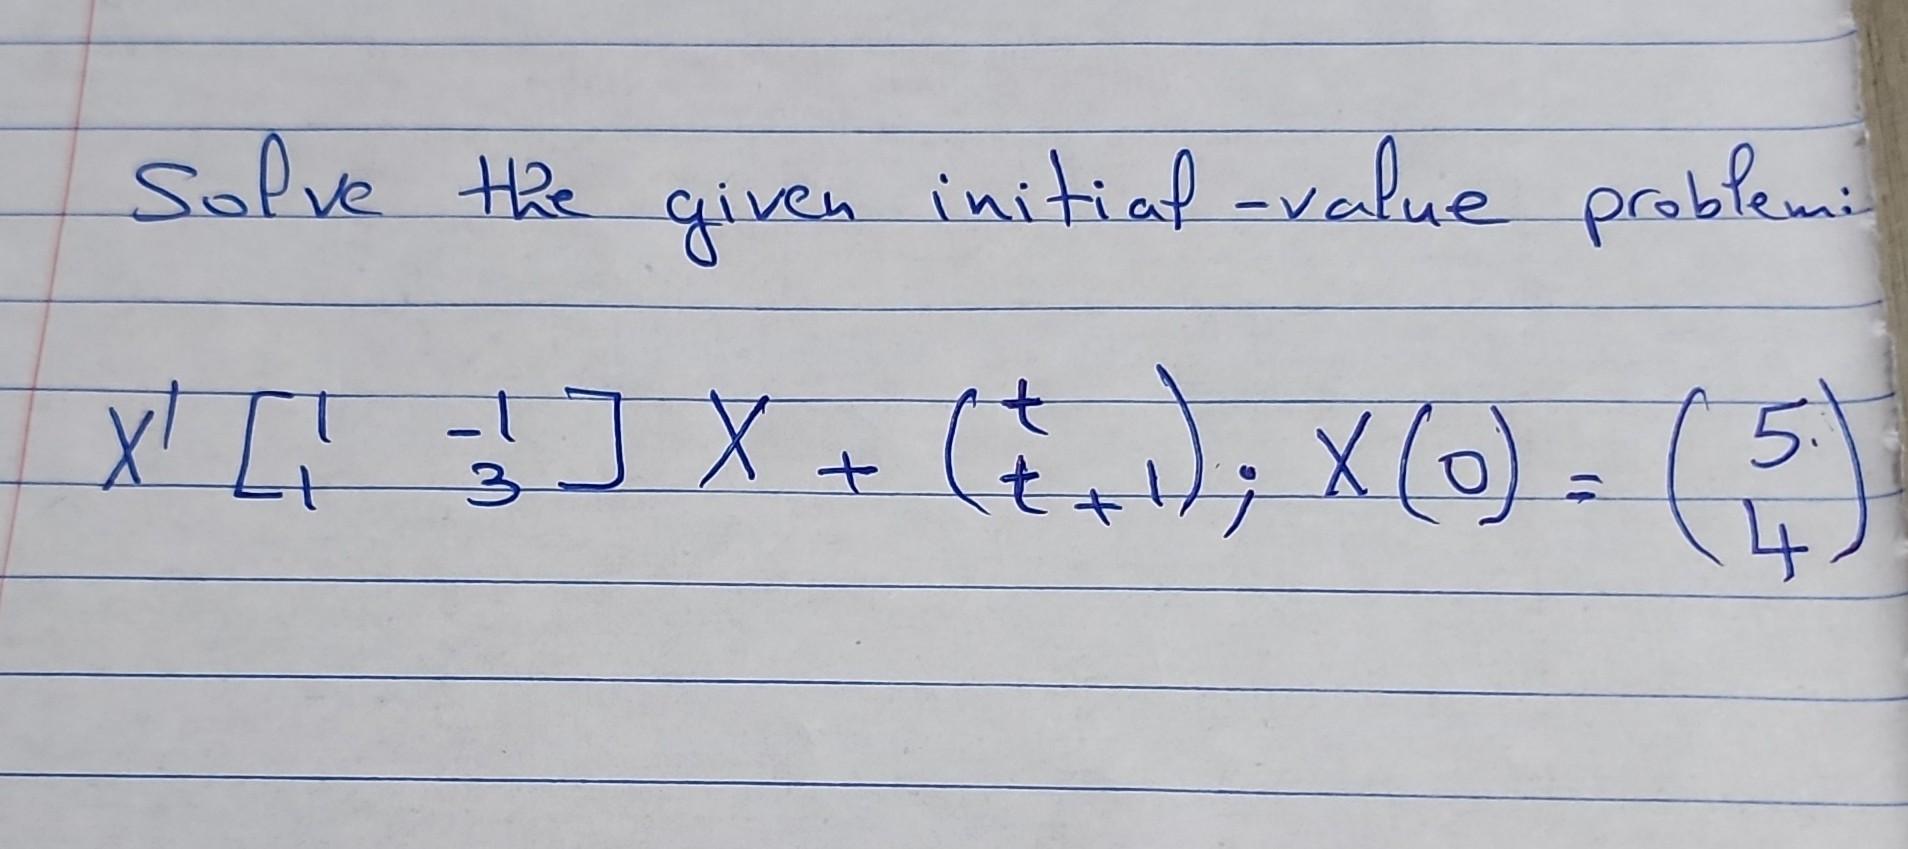 Solve the given initial-value problem:
X' [1 -1 1 3] X + (t t+1); X(0) = (5. 4)